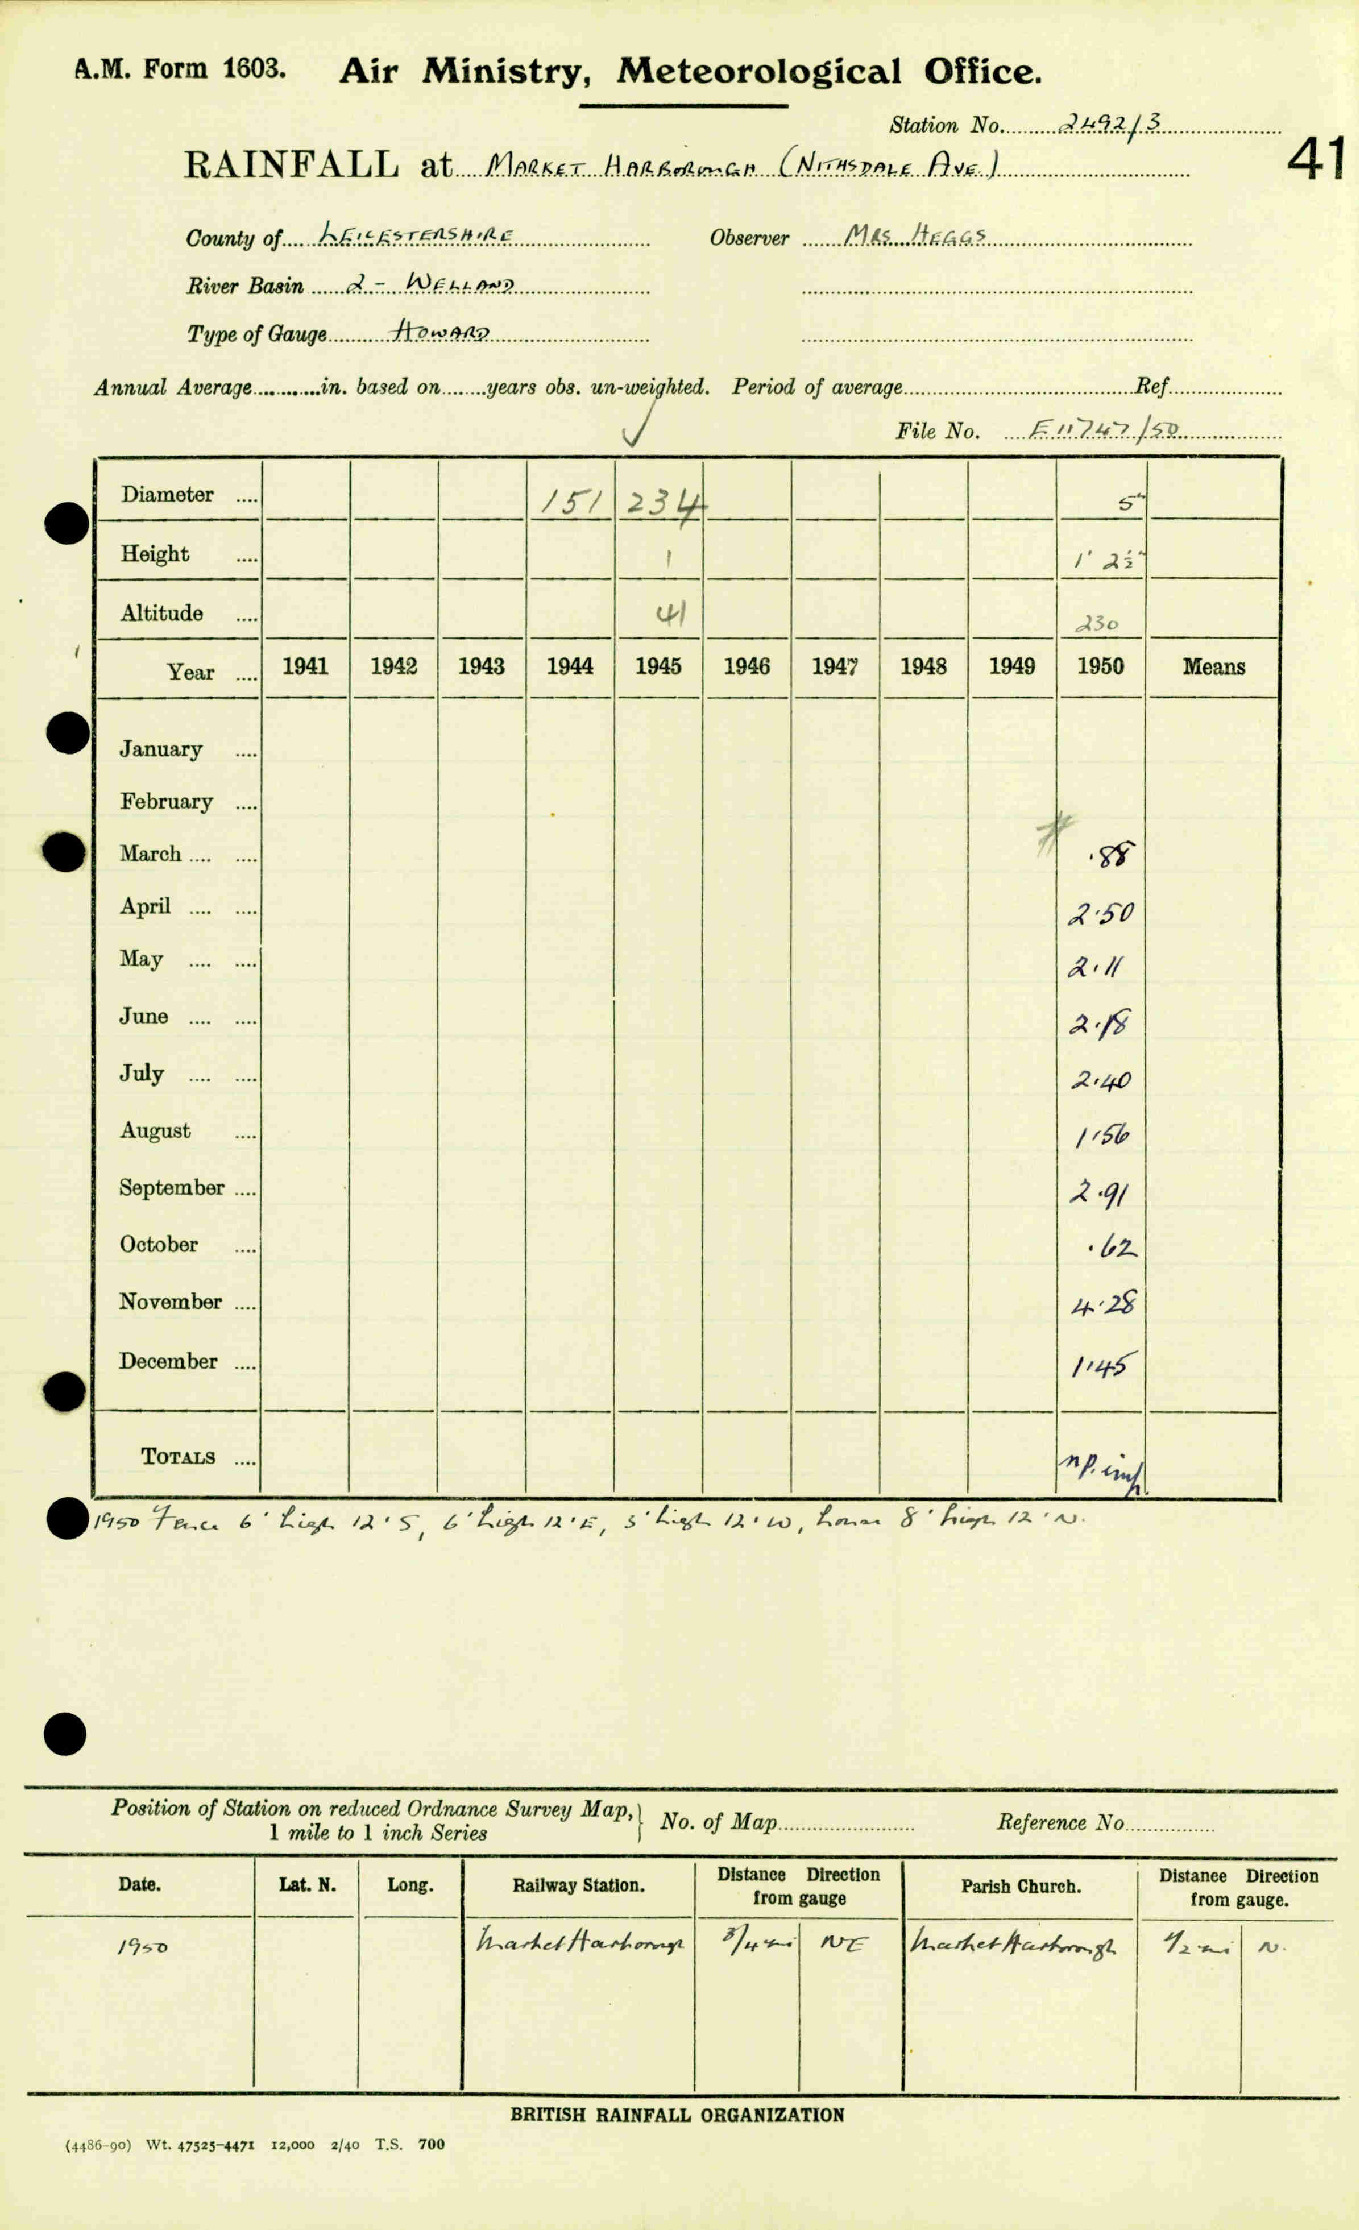 A.M. Form 1603. Air Ministry, Meteorological Office.
Station No. 2492/3
41
RAINFALL at MARKET HARBOROUGH (NITHSDALE AVE.)
County of LEICESTERSHIRE Observer MRS. HEGGS
River Basin 2 - WELLAND
Type of Gauge HOWARD
Annual Average............in. based on.......years obs. un-weighted. Period of average Ref.
File No. E11747/50
Diameter .... 151 234 5"
Height .... 1 1' 2½"
Altitude .... 41 230
Year .... 1941 1942 1943 1944 1945 1946 1947 1948 1949 1950 Means
January ....
February ....
March .... .... .88
April .... .... 2.50
May .... .... 2.11
June .... .... 2.18
July .... .... 2.40
August .... 1.56
September .... 2.91
October .... .62
November .... 4.28
December .... 1.45
TOTALS .... np. imp.
1950 Fence 6' high 12' S, 6' high 12' E, 5' high 12' W, house 8' high 12' N.
Position of Station on reduced Ordnance Survey Map, } No. of Map Reference No.
1 mile to 1 inch Series
Date. Lat. N. Long. Railway Station. Distance Direction from gauge Parish Church. Distance Direction from gauge.
1950 Market Harborough 3/4 mi NE Market Harborough 1/2 mi N.
BRITISH RAINFALL ORGANIZATION
(4486-90) Wt. 47525-4471 12,000 2/40 T.S. 700